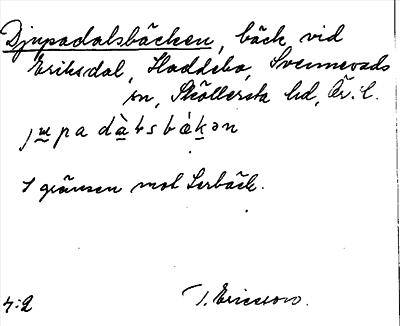 Djupadalsbäcken, bäck vid
Eriksdal, Haddebo, Svennevads
sn, Sköllersta hd, Ör. l.
I gränsen mot Lerbäck.
4:2
T. Ericsson.